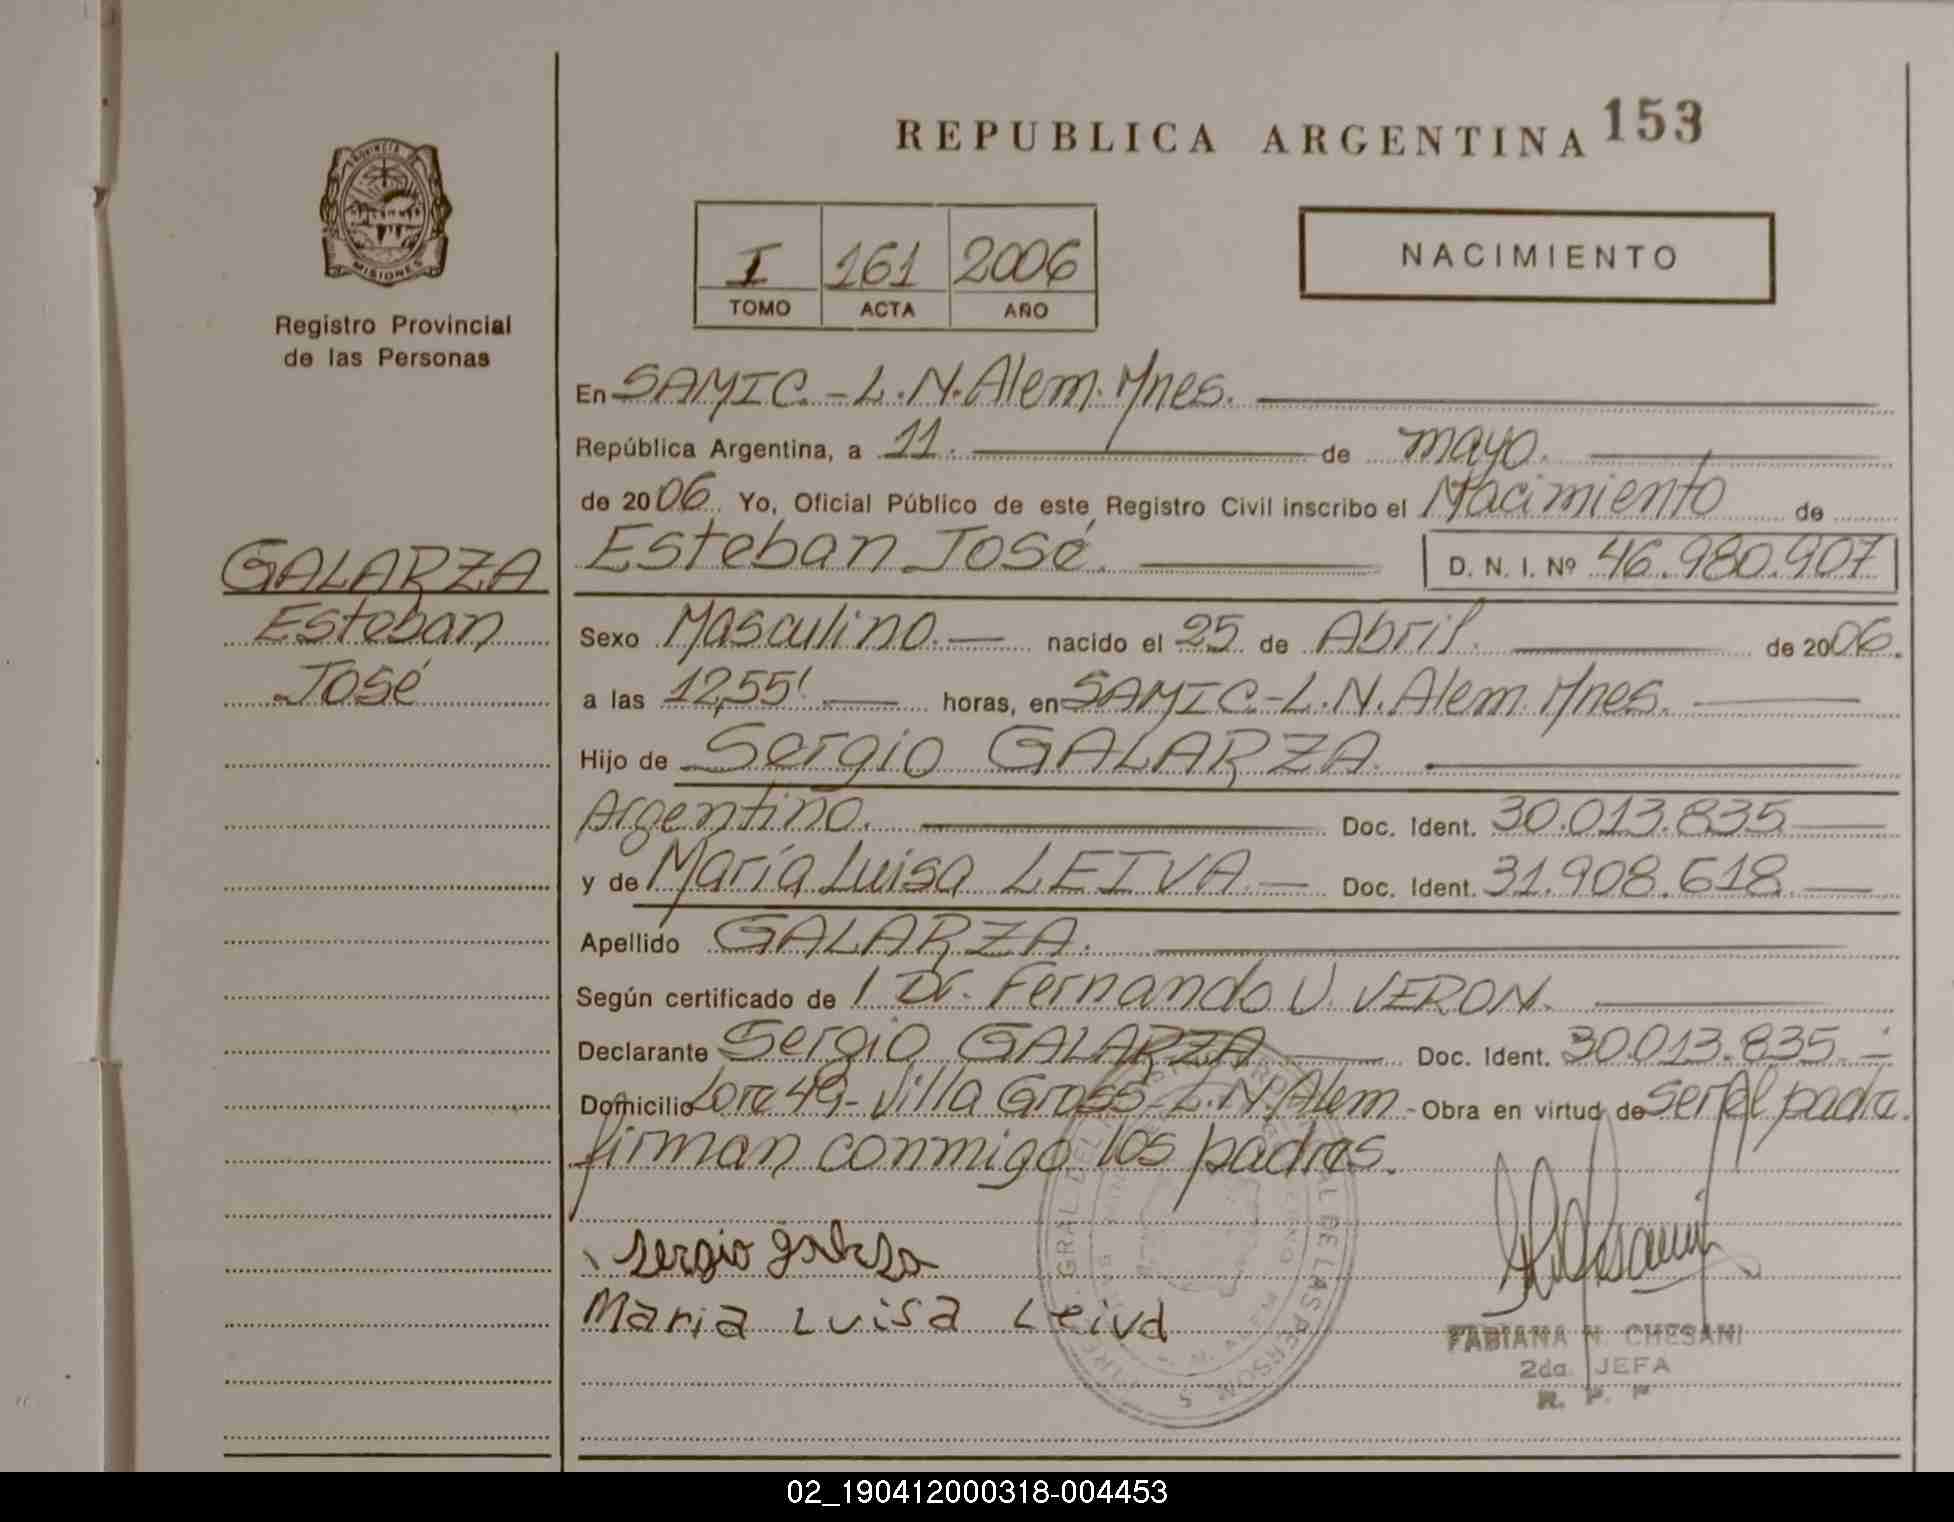 REPUBLICA ARGENTINA 153
PROVINCIA DE
MISIONES
Registro Provincial
de las Personas
I 161 2006
TOMO ACTA AÑO
NACIMIENTO
En SAMIC.-L.N.Alem.Mnes.
República Argentina, a 11. de mayo.
de 2006. Yo, Oficial Público de este Registro Civil inscribo el Nacimiento de
GALARZA
Esteban
José
Esteban José. D. N. I. Nº 46.980.907
Sexo Masculino. nacido el 25 de Abril. de 2006.
a las 12,55' horas, en SAMIC-L.N.Alem.Mnes.
Hijo de Sergio GALARZA.
Argentino. Doc. Ident. 30.013.835
y de María Luisa LEIVA. Doc. Ident. 31.908.618.
Apellido GALARZA.
Según certificado de / Dr. Fernando U. VERON.
Declarante Sergio GALARZA Doc. Ident. 30.013.835.
Domicilio Lote 49-Villa Gross-L.N.Alem - Obra en virtud de ser el padre.
firman conmigo los padres.
sergio galarsa
Maria Luisa Leiva
FABIANA N. CHESANI
2da. JEFA
R. P. P
02_190412000318-004453